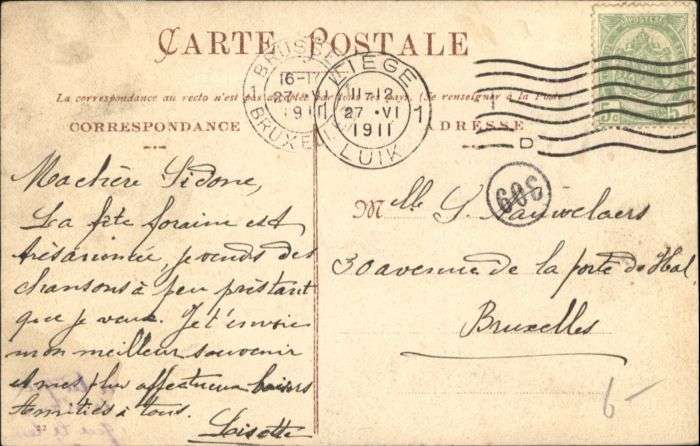 CARTE POSTALE
La correspondance au recto n'est pas acceptée par tous les pays. (Se renseigner à la Poste)
CORRESPONDANCE
ADRESSE
BRUXELLES
16-17
27 VI
1911
BRUSSEL
1
LIÈGE
11-12
27 VI
1911
LUIK
1
1
D
5c
5
309
Ma chère Sidone,
La fête foraine est
très animée, je vends des
chansons à peu près tant
que je veux. Je t'envoie
mon meilleur souvenir
et mes plus affectueux baisers
Amitiés à tous.
Loisette
Mlle S. Nauwelaers
30 avenue de la porte de Hal
Bruxelles
6-